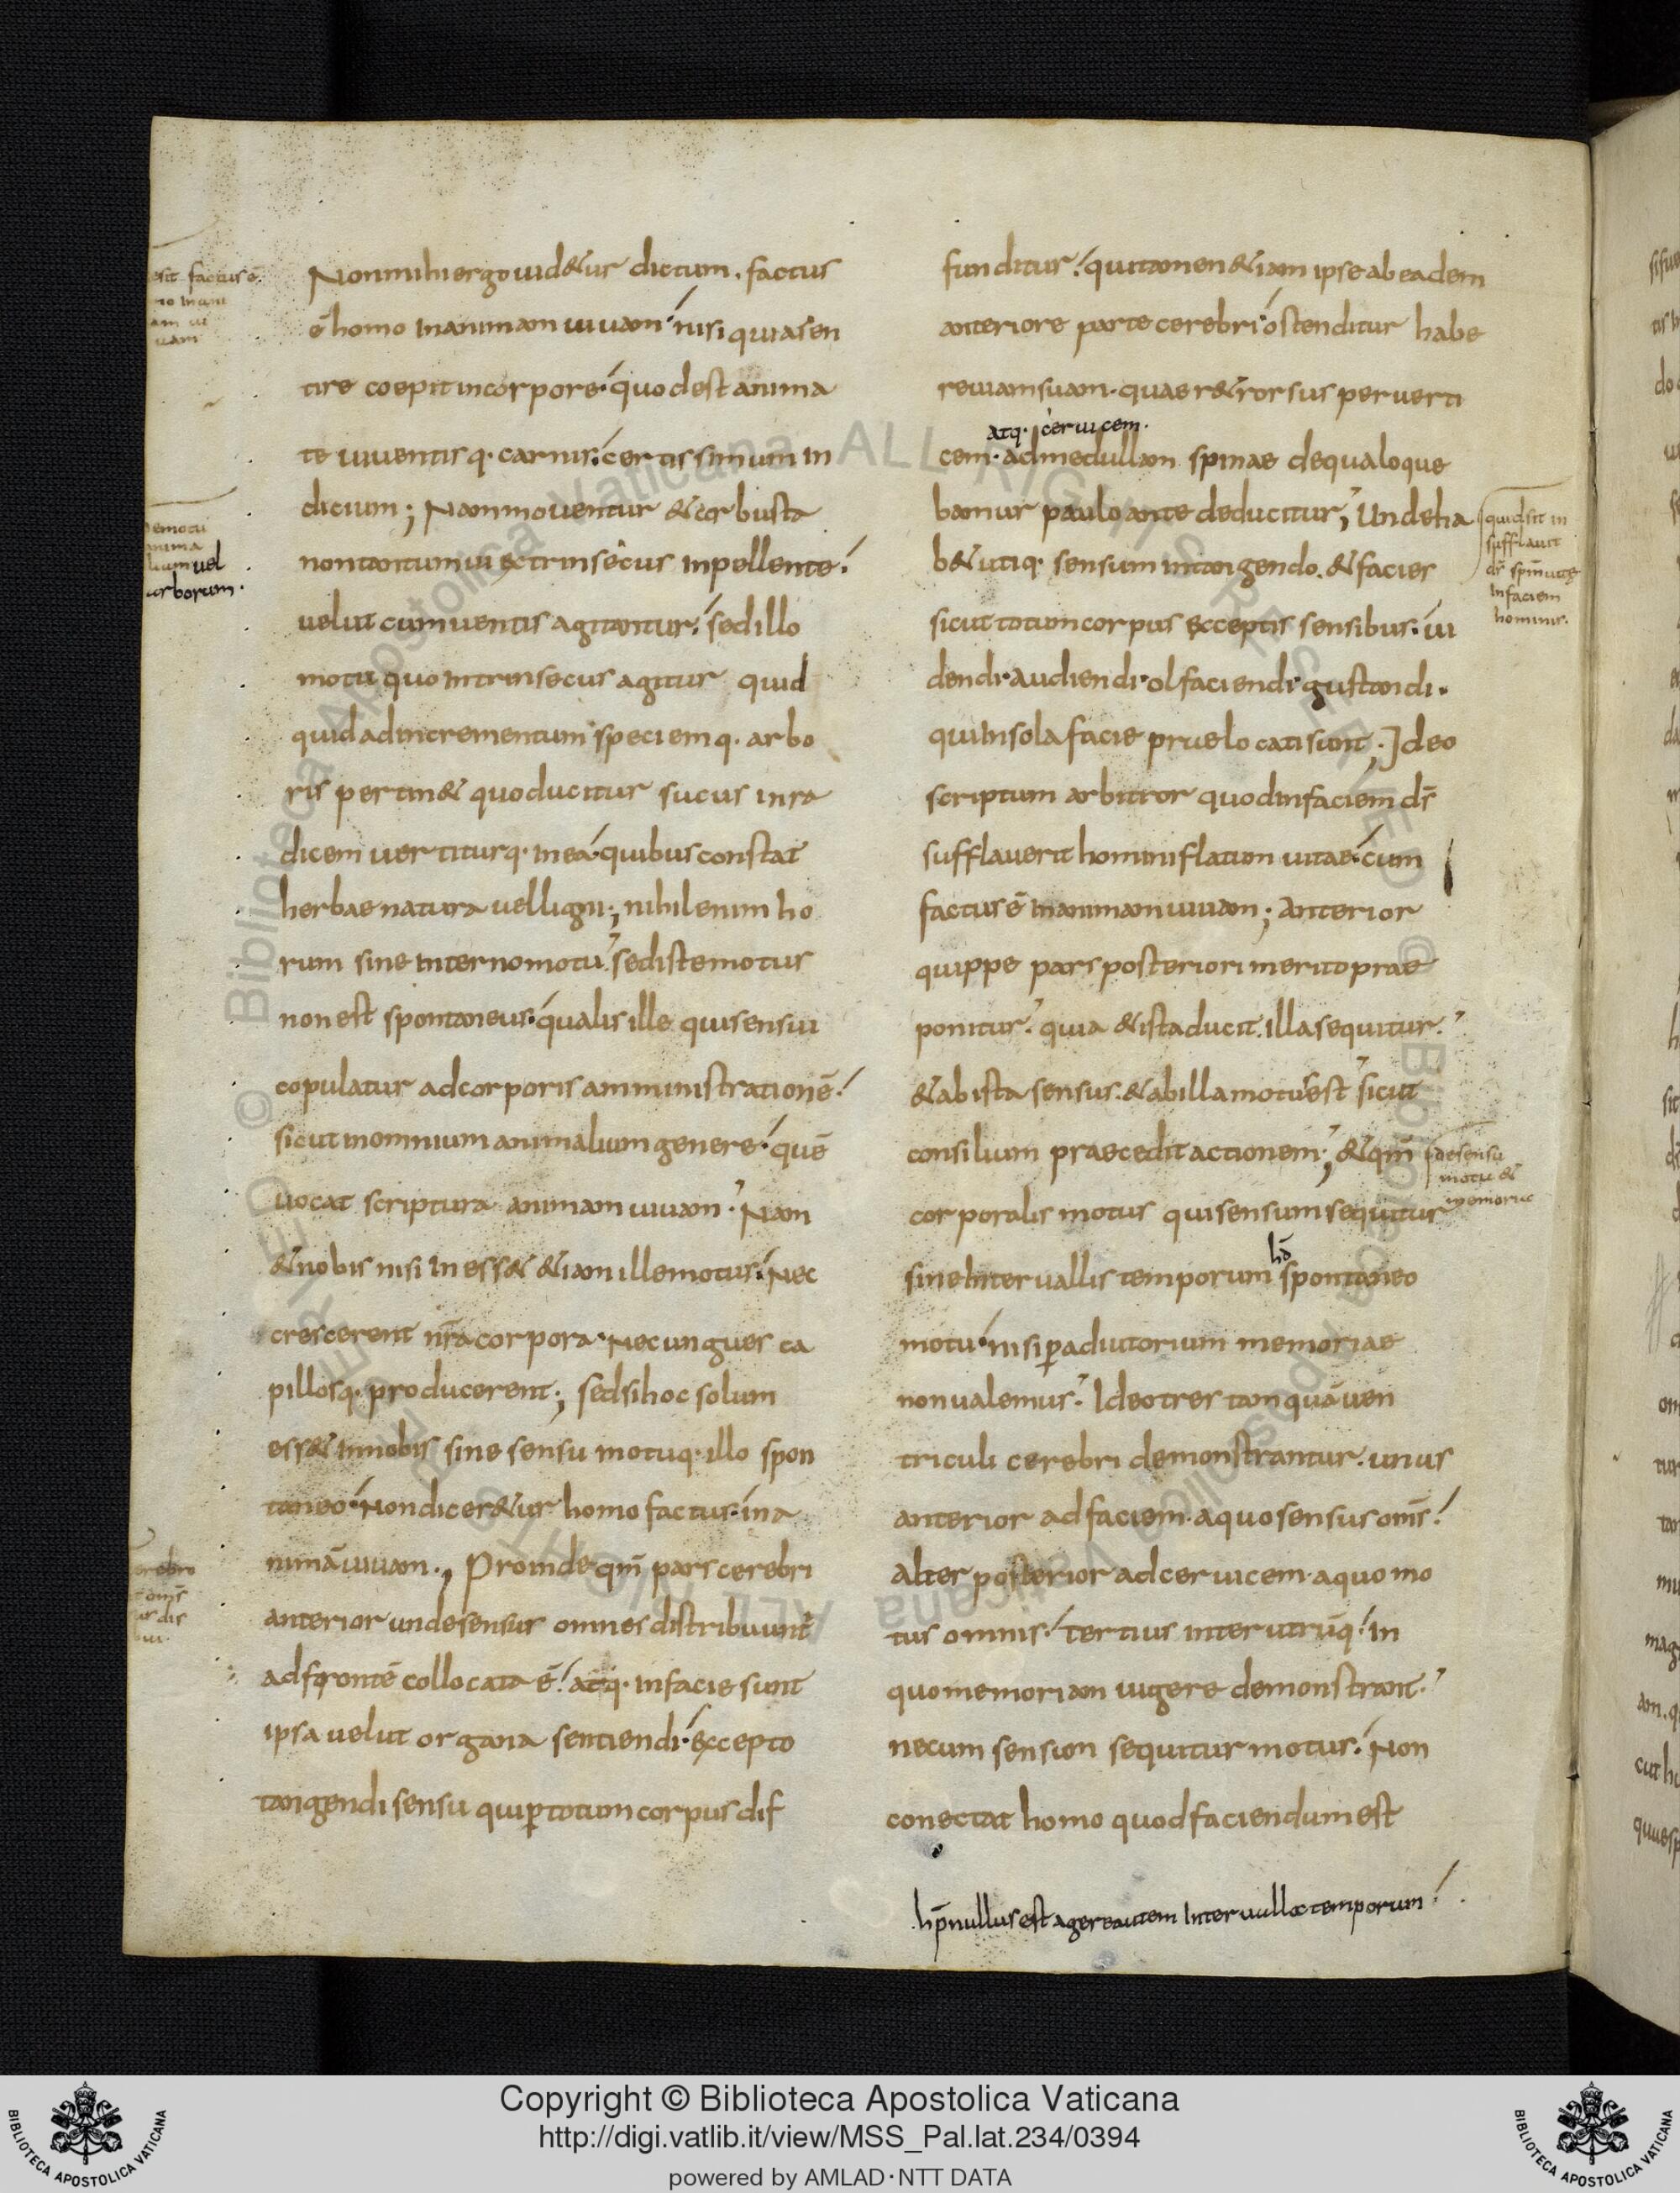 Non mihi ergo uid&ur dictum. factus
ē homo in animam uiuam nisi quia sen
tire coepit in corpore. quod est anima
te uiuentisq. carnis. certissimum in
dicium; Nam mouentur & arbusta
non tantum ui extrinsecus inpellente.
uelut cum uentis agitantur. sed illo
motu quo intrinsecus agitur quid
quid ad incrementum speciemq. arbo
ris pertin& quo ducitur sucus in ra
dicem uertiturq. in ea. quibus constat
herbae natura uel ligni; nihil enim ho
rum sine interno motu. sed iste motus
non est spontaneus. qualis ille qui sensui
copulatur ad corporis amministrationē.
sicut in omnium animalium genere. quē
uocat scriptura animam uiuam. Nam
& nobis nisi iness& &iam ille motus. nec
crescerent nr̄a corpora. nec ungues ca
pillosq. producerent; sed si hoc solum
ess& in nobis sine sensu motuq. illo spon
taneo. non dicer&ur homo factus. in a
nimā uiuam., Proinde qm̄ pars cerebri
anterior unde sensus omnes distribuunt
ad frontē collocata ē. atq. in facie sunt
ipsa uelut organa sentiendi. excepto
tangendi sensu qui p̱ totum corpus dif
funditur. qui tamen &iam ipse ab eadem
anteriore parte cerebri ostenditur habe
re uiam suam. quae r&rorsus per uerti
atq. ceruicem.
cem. ad medullam spinae de qua loque
bamur paulo ante deducitur; Unde ha
b& utiq. sensum in tangendo. & facies
sicut totum corpus exceptis sensibus. ui
dendi. audiendi. olfaciendi. gustandi.
qui in sola facie pruelocati sunt; Ideo
scriptum arbitror quod in faciem ds̄
sufflauerit homini flatum uitae. cum
factus ē in animam uiuam; Anterior
quippe pars posteriori merito prae
ponitur. quia & ista ducit. illa sequitur.
& ab ista sensus. & ab illa motus est sicut
consilium praecedit actionem; & qm̄
corporalis motus qui sensum sequitur
hō
sine interuallis temporum spontaneo
motu. nisi p̱ adiutorium memoriae
non ualemus. Ideo tres tamquā uen
triculi cerebri demonstrantur. unus
anterior ad faciem. a quo sensus om̄s.
alter posterior ad ceruicem. a quo mo
tus omnis. tertius inter utrūq. in
quo memoriam uigere demonstrant.
ne cum sensum sequitur motus. non
conectat homo quod faciendum est
hp̄ nullus est agere autem interualla temporum
factus ē.
uam
uel
arborum.
quid sit in
sufflauit
ds̄ spm̄ uitę
in faciem
hominis.
de sensu
motu &
memoriae
Copyright © Biblioteca Apostolica Vaticana
http://digi.vatlib.it/view/MSS_Pal.lat.234/0394
powered by AMLAD·NTT DATA
BIBLIOTECA APOSTOLICA VATICANA
BIBLIOTECA APOSTOLICA VATICANA